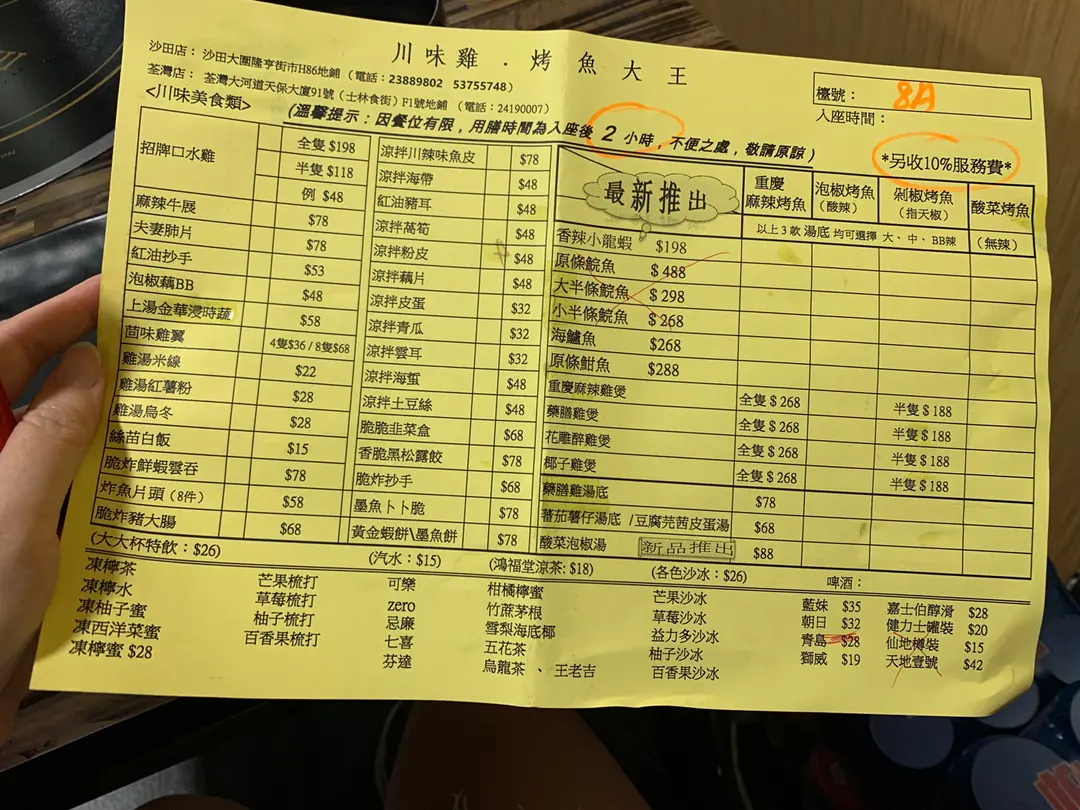 川味雞．烤魚大王
沙田店： 沙田大圍隆亨街市H86地鋪 (電話：23889802 53755748)
荃灣店： 荃灣大河道天保大廈91號 (士林食街) F1號地鋪 (電話：24190007)
檯號： 8A
入座時間：
<川味美食類>
(溫馨提示：因餐位有限，用膳時間為入座後 2 小時，不便之處，敬請原諒)
*另收10%服務費*
招牌口水雞 全隻 $198
半隻 $118
例 $48
麻辣牛展 $78
夫妻肺片 $78
紅油抄手 $53
泡椒藕BB $48
上湯金華浸時蔬 $58
茴味雞翼 4隻$36 / 8隻$68
雞湯米線 $22
雞湯紅薯粉 $28
雞湯烏冬 $28
絲苗白飯 $15
脆炸鮮蝦雲吞 $78
炸魚片頭 (8件) $58
脆炸豬大腸 $68
涼拌川辣味魚皮 $78
涼拌海帶 $48
紅油豬耳 $48
涼拌萵筍 $48
涼拌粉皮 $48
涼拌藕片 $48
涼拌皮蛋 $32
涼拌青瓜 $32
涼拌雲耳 $32
涼拌海蜇 $48
涼拌土豆絲 $48
脆脆韭菜盒 $68
香脆黑松露餃 $78
脆炸抄手 $68
墨魚卜卜脆 $78
黃金蝦餅\墨魚餅 $78
最新推出
重慶麻辣烤魚
泡椒烤魚 (酸辣)
剁椒烤魚 (指天椒)
酸菜烤魚
以上3款湯底 均可選擇 大、中、BB辣
(無辣)
香辣小龍蝦 $198
原條鯇魚 $488
大半條鯇魚 $298
小半條鯇魚 $268
海鱸魚 $268
原條鮒魚 $288
重慶麻辣雞煲 全隻 $268 半隻 $188
藥膳雞煲 全隻 $268 半隻 $188
花雕醉雞煲 全隻 $268 半隻 $188
椰子雞煲 全隻 $268 半隻 $188
藥膳雞湯底 $78
蕃茄薯仔湯底 /豆腐芫茜皮蛋湯 $68
酸菜泡椒湯 新品推出 $88
(大大杯特飲：$26)
凍檸茶
凍檸水
凍柚子蜜
凍西洋菜蜜
凍檸蜜 $28
芒果梳打
草莓梳打
柚子梳打
百香果梳打
(汽水：$15)
可樂
zero
忌廉
七喜
芬達
(鴻福堂涼茶: $18)
柑橘檸蜜
竹蔗茅根
雪梨海底椰
五花茶
烏龍茶 、王老吉
(各色沙冰：$26)
芒果沙冰
草莓沙冰
益力多沙冰
柚子沙冰
百香果沙冰
啤酒：
藍妹 $35
朝日 $32
青島 $28
獅威 $19
嘉士伯醇滑 $28
健力士罐裝 $20
仙地樽裝 $15
天地壹號 $42